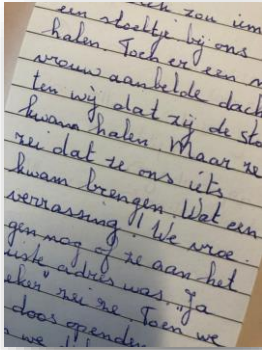 zou iem
een stoeltje bij ons
halen. Toch er een
vrouw aanbelde dach
ten wij dat zij de sto
kwam halen. Maar ze
zei dat ze ons iets
kwam brengen. Wat een
verrassing!! We vroe
gen nog of ze aan het
uiste adres was. "Ja
eker" zei ze. Toen we
doos openden
we